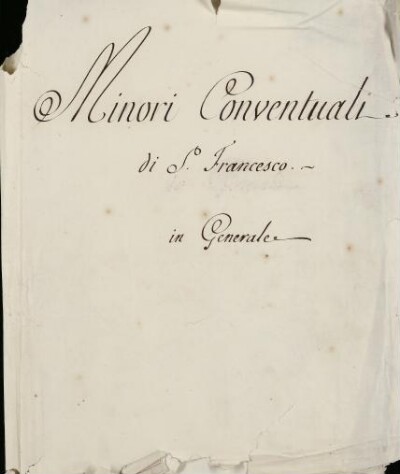 Minori Conventuali.
di S.º Francesco. ~
in Generale